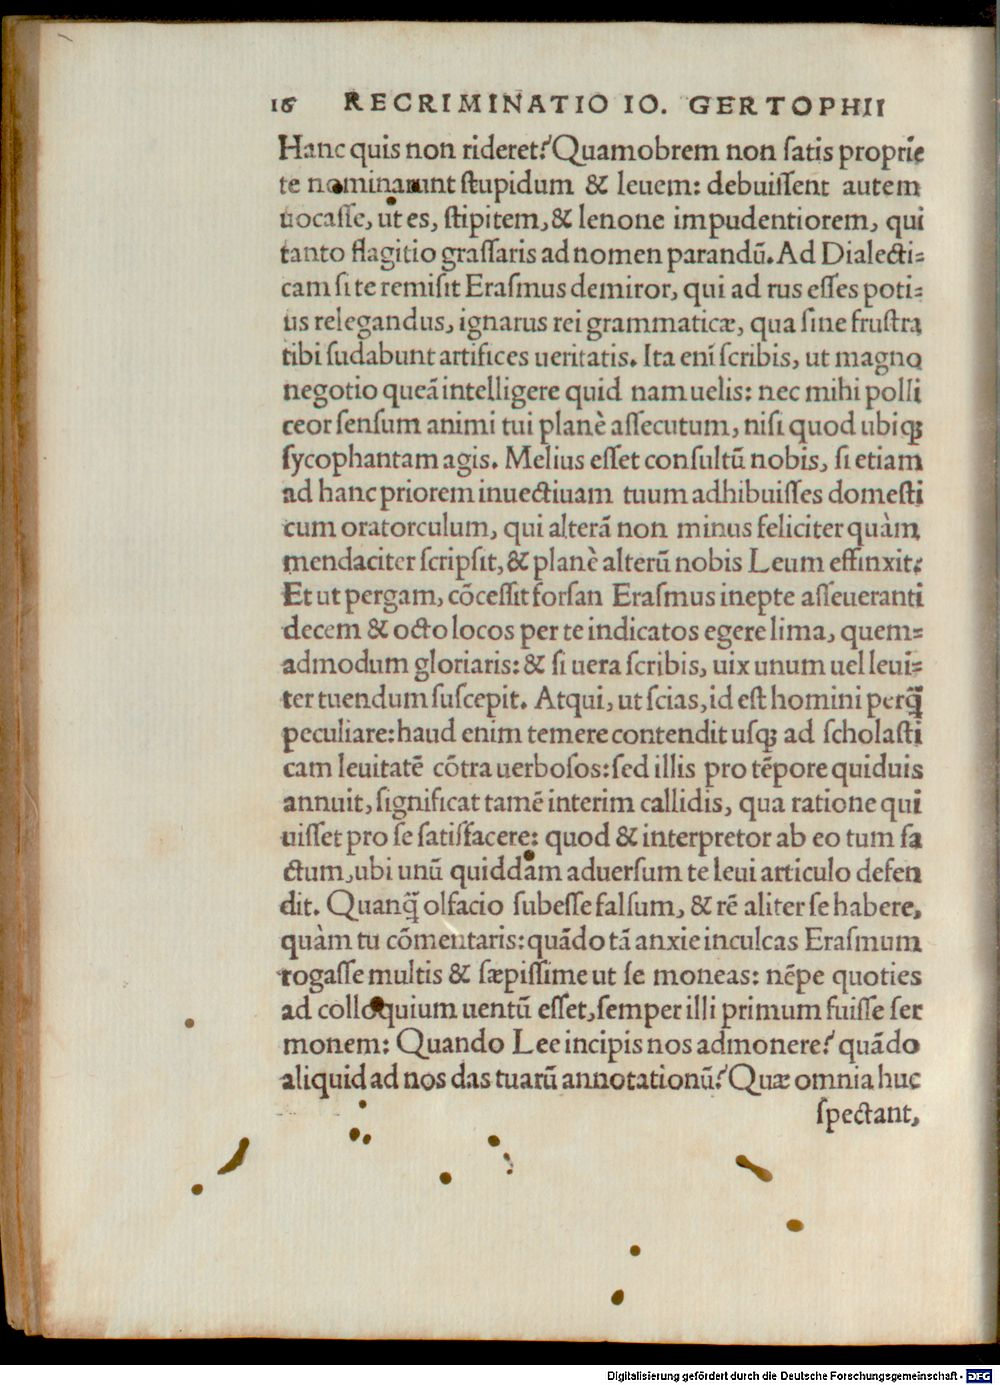 16 RECRIMINATIO IO. GERTOPHII
Hanc quis non rideret? Quamobrem non ſatis proprie
te nominarunt ſtupidum & leuem: debuiſſent autem
uocaſſe, ut es, ſtipitem, & lenone impudentiorem, qui
tanto flagitio graſſaris ad nomen parandū. Ad Dialecti-
cam ſi te remiſit Eraſmus demiror, qui ad rus eſſes poti-
us relegandus, ignarus rei grammaticæ, qua ſine fruſtra
tibi ſudabunt artifices ueritatis. Ita enī ſcribis, ut magno
negotio queā intelligere quid nam uelis: nec mihi polli
ceor ſenſum animi tui planè aſſecutum, niſi quod ubiqꝫ
ſycophantam agis. Melius eſſet conſultū nobis, ſi etiam
ad hanc priorem inuectiuam tuum adhibuiſſes domeſti
cum oratorculum, qui alterā non minus feliciter quàm
mendaciter ſcripſit, & planè alterū nobis Leum effinxit.
Et ut pergam, cōceſſit forſan Eraſmus inepte aſſeueranti
decem & octo locos per te indicatos egere lima, quem-
admodum gloriaris: & ſi uera ſcribis, uix unum uel leui-
ter tuendum ſuſcepit. Atqui, ut ſcias, id eſt homini perq̃
peculiare: haud enim temere contendit uſqꝫ ad ſcholaſti
cam leuitatē cōtra uerboſos: ſed illis pro tēpore quiduis
annuit, ſignificat tamē interim callidis, qua ratione qui
uiſſet pro ſe ſatisfacere: quod & interpretor ab eo tum fa
ctum, ubi unū quiddam aduerſum te leui articulo defen
dit. Quanq̃ olfacio ſubeſſe falſum, & rē aliter ſe habere,
quàm tu cōmentaris: quādo tā anxie inculcas Eraſmum
rogaſſe multis & ſæpiſſime ut ſe moneas: nēpe quoties
ad colloquium uentū eſſet, ſemper illi primum fuiſſe ſer
monem: Quando Lee incipis nos admonere? quādo
aliquid ad nos das tuarū annotationū? Quæ omnia huc
ſpectant,
Digitalisierung gefördert durch die Deutsche Forschungsgemeinschaft - DFG